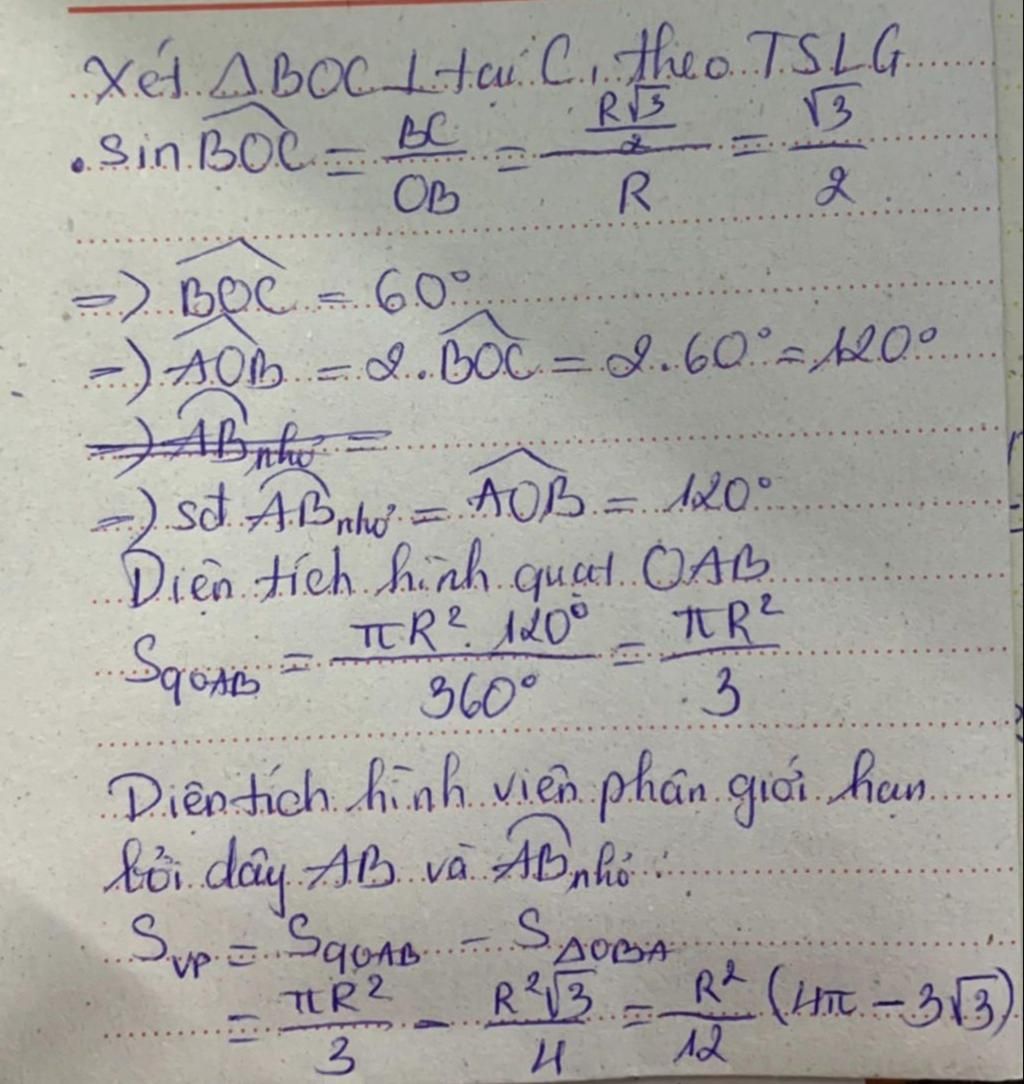 Xét ΔBOC ⊥ tại C, theo TSLG
. sin BOC = BC/OB = (R√3/2)/R = √3/2.
=> BOC = 60°
=> AOB = 2.BOC = 2.60° = 120°
=> AB nhỏ =
=> sđ AB nhỏ = AOB = 120°
Diện tích hình quạt OAB
SqOAB = πR².120°/360° = πR²/3
Diện tích hình viên phân giới hạn
bởi dây AB và AB nhỏ :
SVP = SqOAB - SΔOBA
= πR²/3 - R²√3/4 = R²/12 (4π - 3√3)